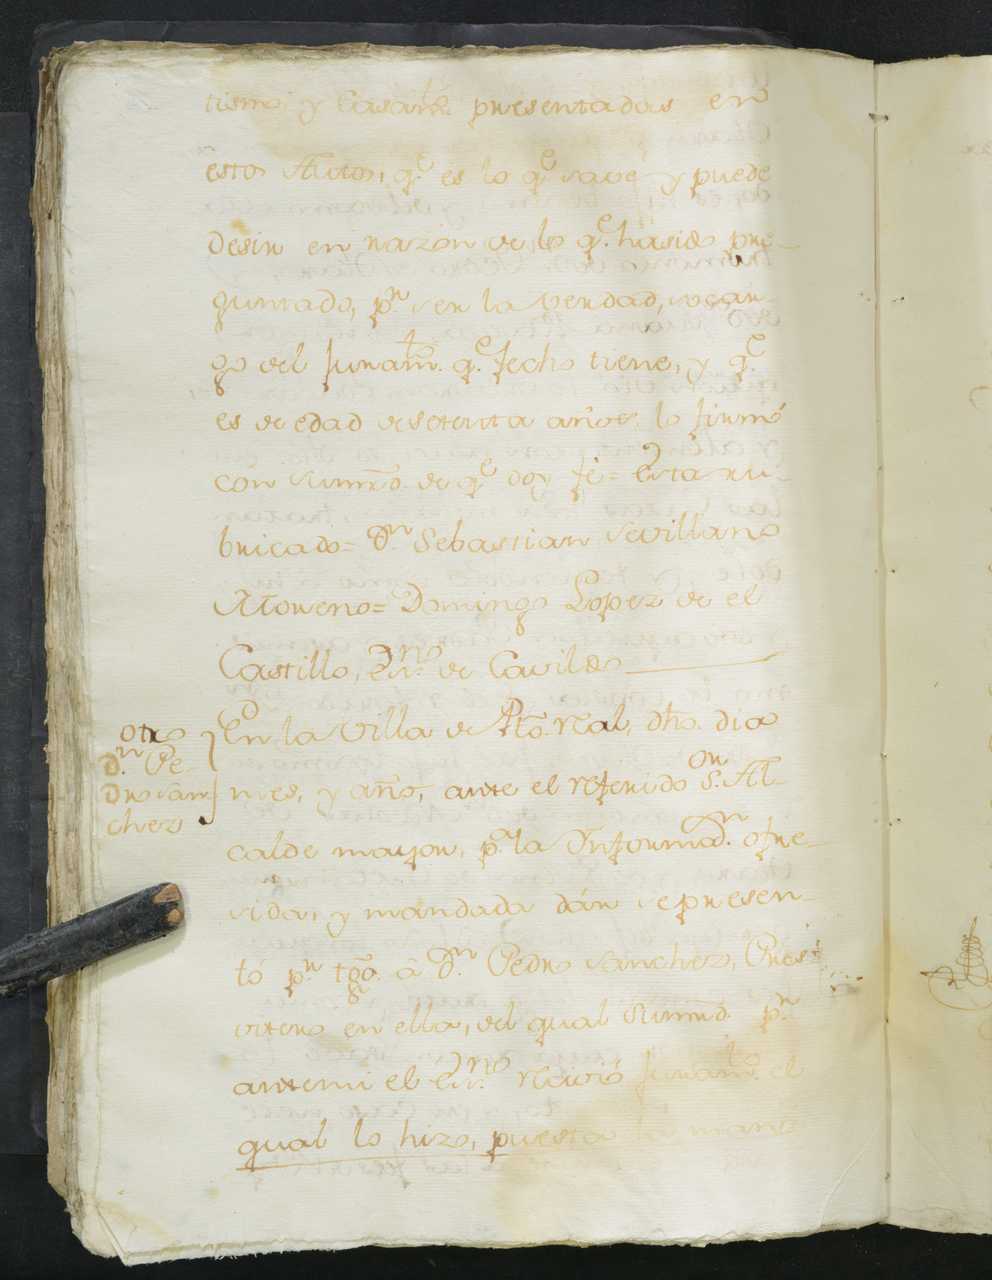 tismo, y Casamto. presentadas en
estos Autos, qe. es lo qe. save y puede
desir en razon de lo qe. ha sido pre-
guntado, pr. ser la verdad, so car-
go del Juramto. qe. fecho tiene, y qe.
es de edad de setenta años, lo firmó
con su mrd. de qe. doy fe= Esta ru-
bricado= Dn. Sebastian Sevillano
Moreno= Domingo Lopez de el
Castillo, Esno. de Cavildo
En la Villa de Pto. Real, dho. dia
mes, y año, ante el referido Sor. Al-
calde mayor, pa. la Informon. ofre-
sida, y mandada dár se presen-
tó pr. tgo. â Dn. Pedro Sanchez, Pres-
vitero en ella, del qual su mrd. pr.
ante mi el Esno. recivió Juramto. el
qual lo hizo, puesta la mano
otro
Dn. Pe-
dro San-
chez